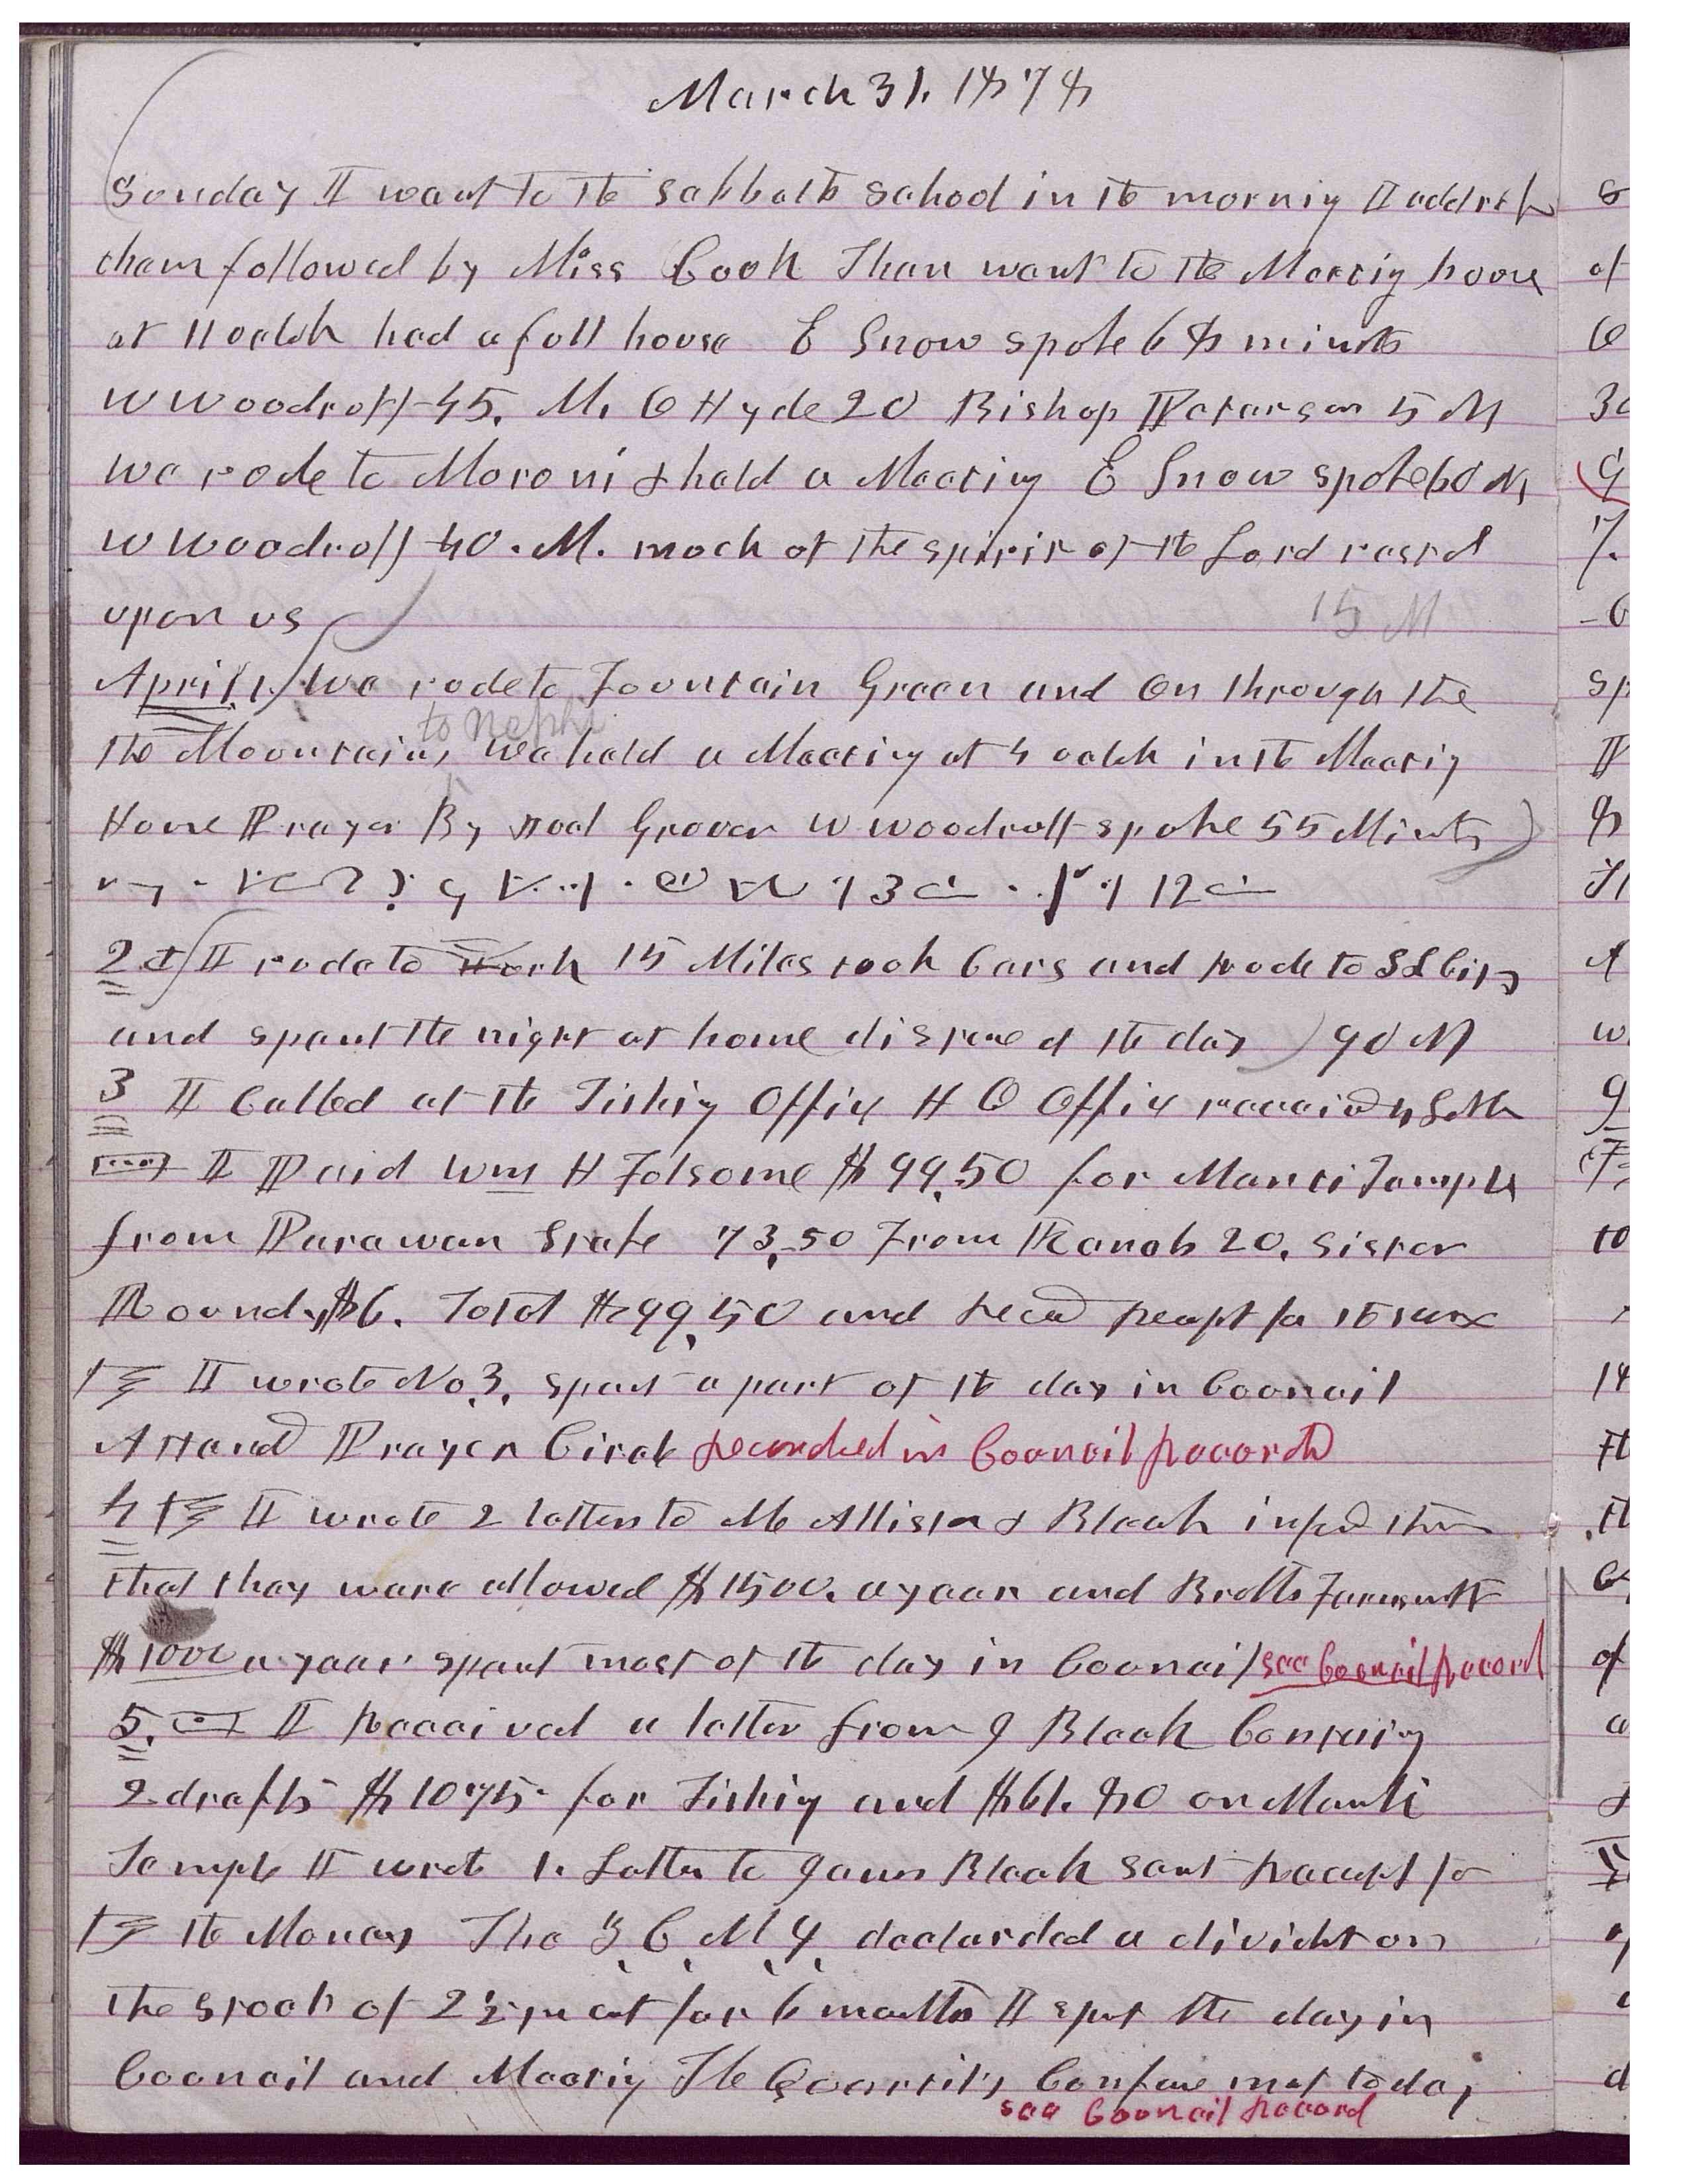 March 31. 1878
Sunday I went to the Sabbath School in the morning I addresd
them followed by Miss Cook Then went to the Meeting house
at 11 oclok had a full house E Snow spoke 68 minuts
W Woodruff 45. M. O Hyde 20 Bishop Peterson 5 M
We rode to Moroni & held a Meeting E Snow spoke 60 M
W Woodruff 40. M. much of the spirit of the Lord rested
upon us 15 M
April 1. We rode to Fountain Green and on through the
to Nephi
the Mountains, we held a Meeting at 4 oclok in the Meetig
House Prayer By Joel Grover W Woodruff spoke 55 Minuts
2d I rode to York 15 Miles took Cars and rode to S L City
and spent the night at home distance of the day 90 M
3 I Called at the Tithing Office H O Office receivd 4
I Paid Wm H Folsome $99.50 for Manti Temple
from Parawan Stake 73.50 From Kanab 20. Sister
Roundy $6. Total $99.50 and recd recept for the same
I wrote No 3. spent a part of the day in Council
Attend Prayer Circle recorded in Council record
4 I wrote 2 letters to McAllister & Bleak infod them
that they were allowed $1500. a year and Brother Farnsworth
$1000 a year spent most of the day in Council see Council record
5. I received a letter from J Bleak Containg
2 drafts $1075 for Tithing and $61.80 on Manti
Temple I wrote 1. Letter to James Bleak sent receipt for
the Money The Z C M I declarded a dividet on
the stock of 2½ pr cet for 6 months I spet the day in
Council and Meeting The Quarterly Confere met to day
see Council record